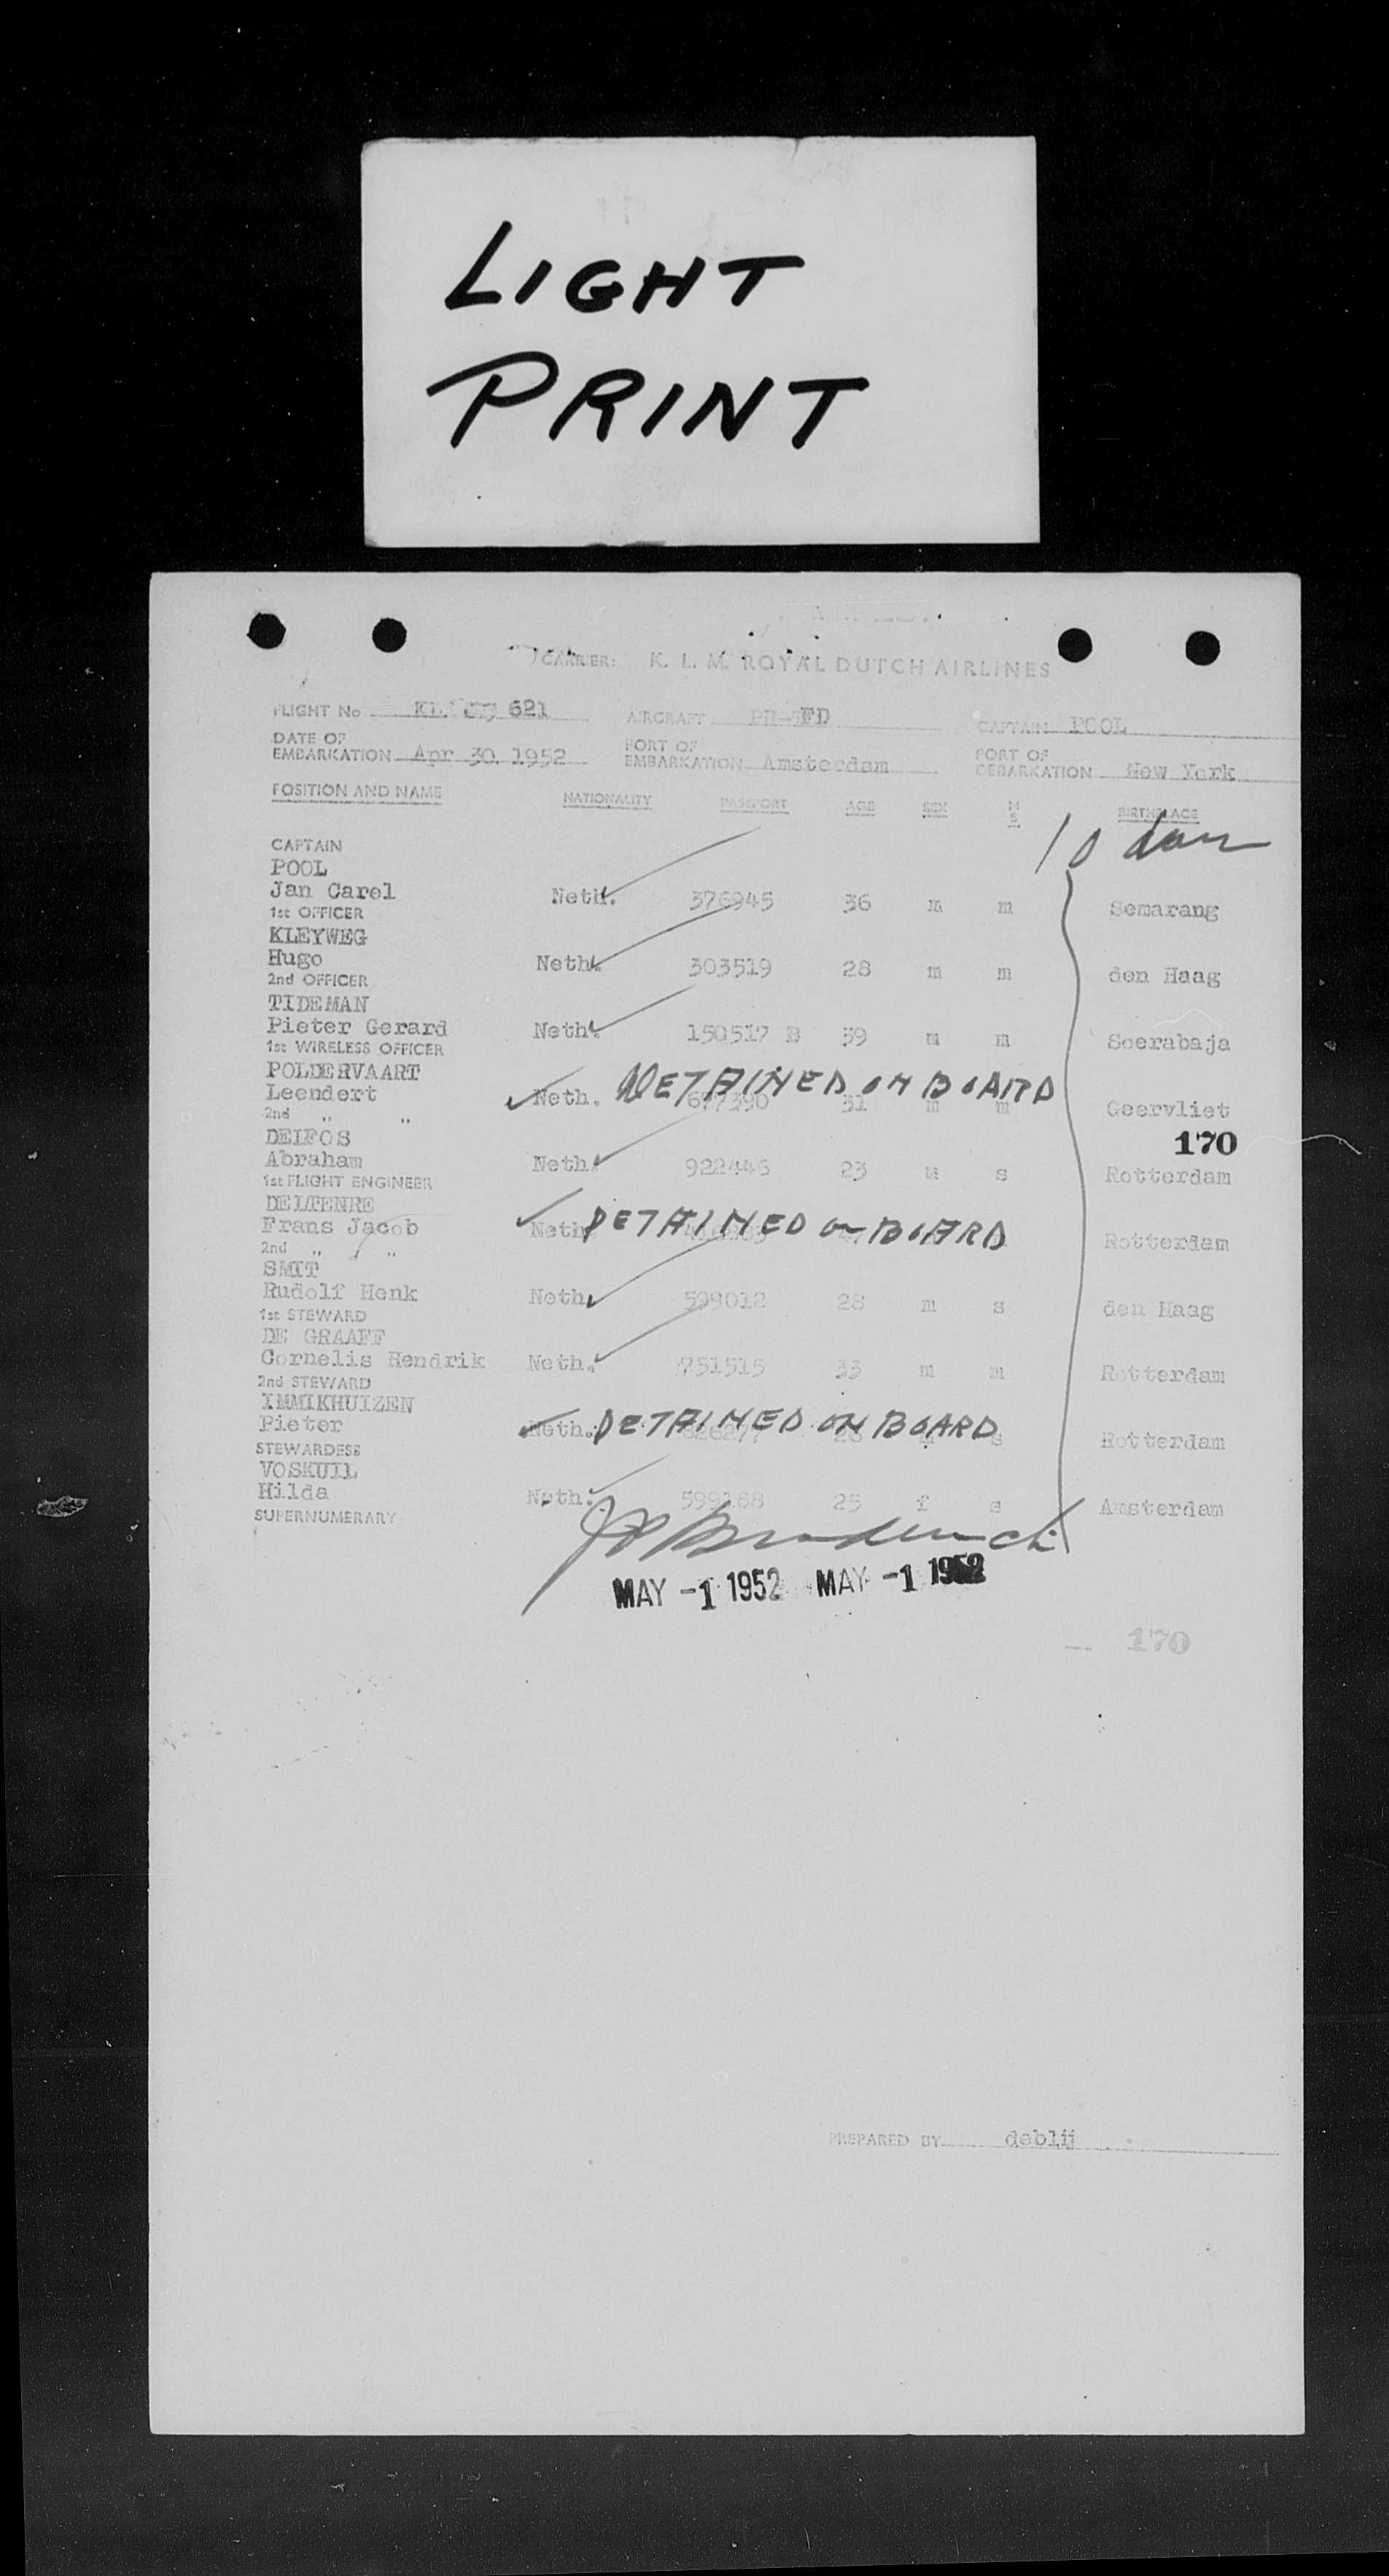 LIGHT
PRINT
CARRIER: K. L. M. ROYAL DUTCH AIRLINES
FLIGHT No KL 621 AIRCRAFT PH-TFD CAPTAIN POOL
DATE OF EMBARKATION Apr 30. 1952 PORT OF EMBARKATION Amsterdam PORT OF DEBARKATION New York
POSITION AND NAME NATIONALITY PASSPORT AGE SEX M S BIRTHPLACE
CAPTAIN
POOL
Jan Carel Neth. 376945 36 m m Semarang
1st OFFICER
KLEYWEG
Hugo Neth. 303519 28 m m den Haag
2nd OFFICER
TIDEMAN
Pieter Gerard Neth. 150517 B 39 m m Soerabaja
1st WIRELESS OFFICER
POLDERVAART
DETAINED ON BOARD
Leendert Neth. 31 m m Geervliet
2nd " "
DEIFOS
170
Abraham Neth. 922446 23 m s Rotterdam
1st FLIGHT ENGINEER
DELTENRE
Frans Jacob Neth. DETAINED on BOARD Rotterdam
2nd " "
SMIT
Rudolf Henk Neth. 599012 28 m s den Haag
1st STEWARD
DE GRAAFF
Cornelis Hendrik Neth. 751515 33 m m Rotterdam
2nd STEWARD
IMMIKHUIZEN
Pieter Neth. DETAINED ON BOARD s Rotterdam
STEWARDESS
VOSKUIL
Hilda Neth. 599188 25 f s Amsterdam
SUPERNUMERARY
MAY -1 1952 MAY -1 1952
170
PREPARED BY deblij